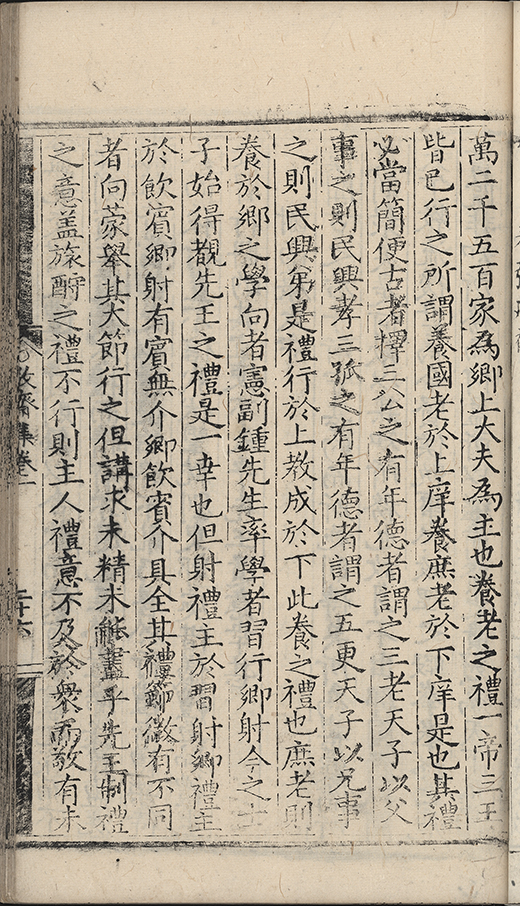 萬二千五百家爲鄉上大夫爲主也養老之禮一帝三王
皆已行之所謂養國老於上庠養庶老於下庠是也其禮
必當簡便古者擇三公之有年德者謂之三老天子以父
事之則民興孝三孤之有年德者謂之五更天子以兄事
之則民興弟是禮行於上教成於下此養之禮也庶老則
養於鄉之學向者憲副鍾先生率學者習行鄉射今之士
子始得觀先王之禮是一幸也但射禮主於習射鄉禮主
於飲賓鄉射有賓無介鄉飲賓介具全其禮節微有不同
者向蒙舉其大節行之但講求未精未能盡乎先王制禮
之意盖旅酬之禮不行則主人禮意不及於衆而敬有未
牧齋集卷一
二十六